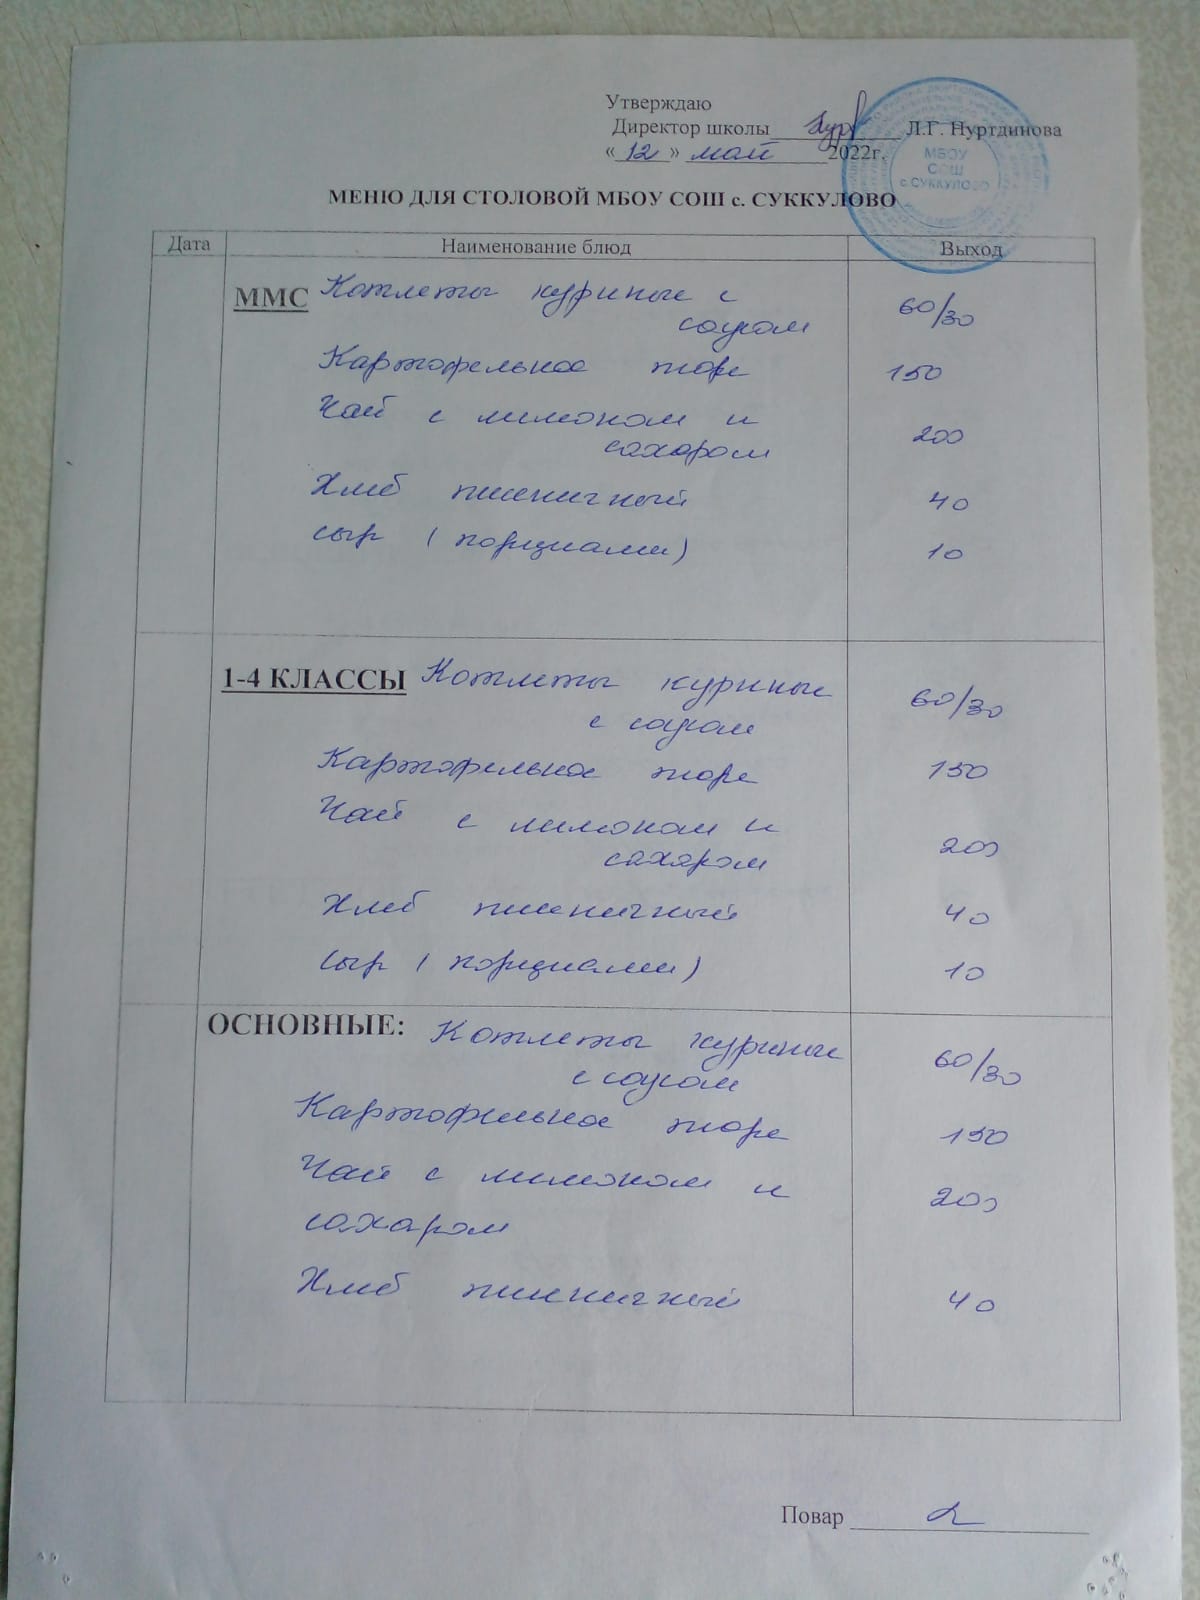 Утверждаю
Директор школы Л.Г. Нуртдинова
« 12 » май 2022г.
МБОУ
СОШ
с. СУККУЛОВО
МЕНЮ ДЛЯ СТОЛОВОЙ МБОУ СОШ с. СУККУЛОВО
Дата Наименование блюд Выход
ММС Котлеты куриные с 60/30
соусом
Картофельное пюре 150
Чай с лимоном и 200
сахаром
Хлеб пшеничный 40
сыр (порциами) 10
1-4 КЛАССЫ Котлеты куриные 60/30
с соусом
Картофельное пюре 150
Чай с лимоном и 200
сахаром
Хлеб пшеничный 40
сыр (порциами) 10
ОСНОВНЫЕ: Котлеты куриные 60/30
с соусом
Картофельное пюре 150
Чай с лимоном и 200
сахаром
Хлеб пшеничный 40
Повар